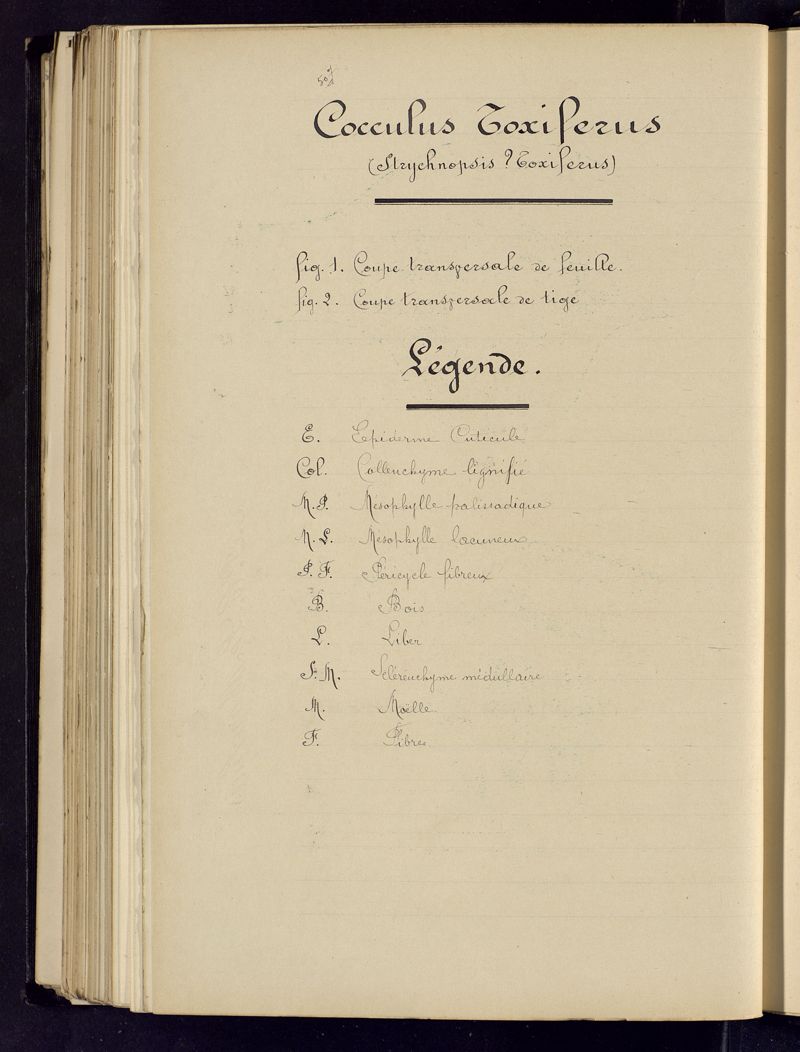 Cocculus Toxiferus
(Strychnopsis ? Toxiferus)
fig. 1. Coupe transversale de feuille.
fig. 2. Coupe transversale de tige
Légende.
E. Epiderme Cuticule
Col. Collenchyme lignifié
M.P. Mésophylle palissadique
M.L. Mésophylle lacuneux
P.F. Péricycle fibreux
B. Bois
L. Liber
S.M. Sclérenchyme médullaire
M. Moëlle
F. Fibres